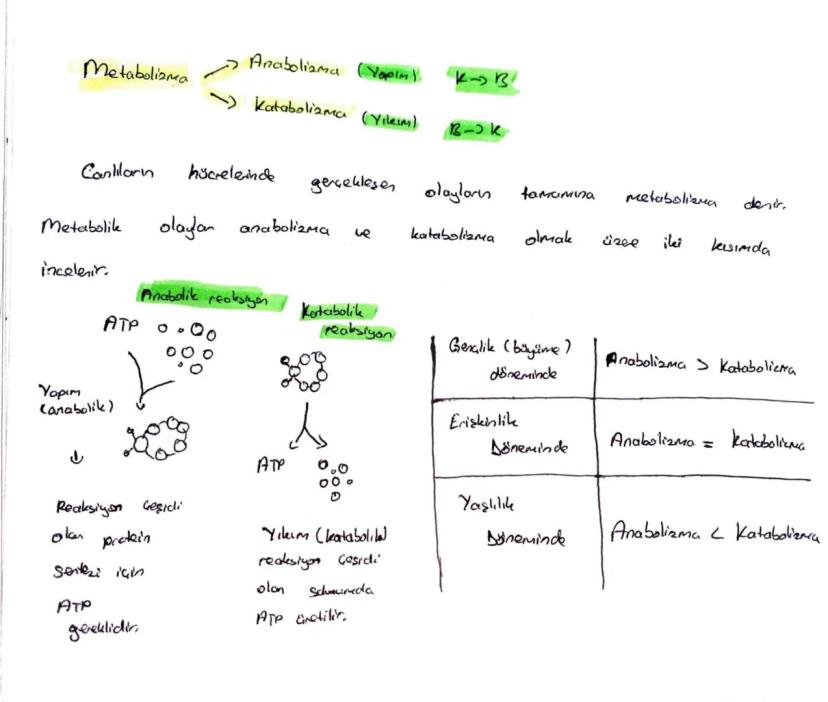 Metabolizma → Anabolizma (Yapım) K→B
→ Katabolizma (Yıkım) B→K
Canlıların hücrelerinde gerçekleşen olayların tamamına metabolizma denir.
Metabolik olaylar anabolizma ve katabolizma olmak üzere iki kısımda
incelenir.
Anabolik reaksiyon
ATP
Yapım
(anabolik)
↓
Reaksiyon çeşidi
olan protein
sentezi için
ATP
gereklidir.
Katabolik
reaksiyon
ATP
Yıkım (katabolik)
reaksiyon çeşidi
olan solunumda
ATP üretilir.
Gençlik (büyüme)
döneminde
Anabolizma > Katabolizma
Erişkinlik
Döneminde
Anabolizma = Katabolizma
Yaşlılık
Döneminde
Anabolizma < Katabolizma